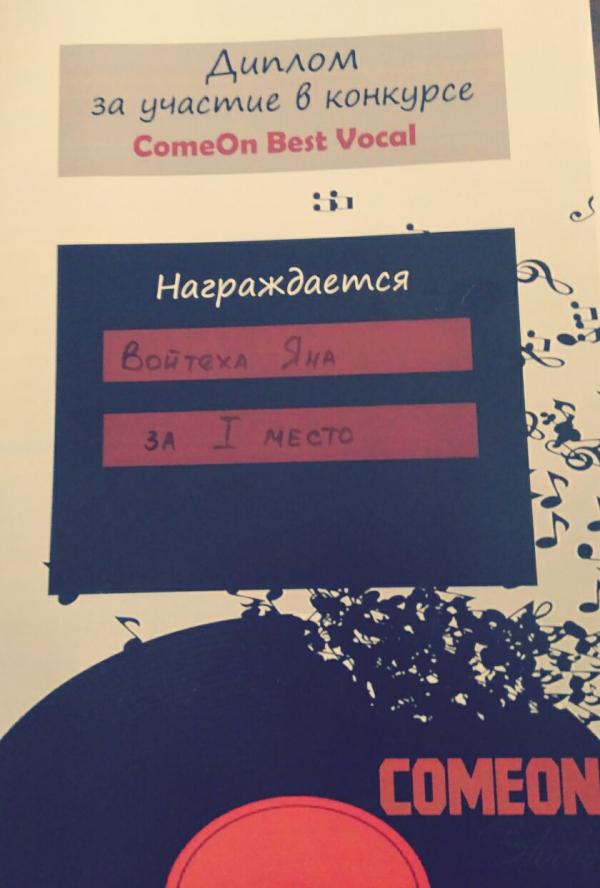 Диплом
за участие в конкурсе
ComeOn Best Vocal
Награждается
Войтеха Яна
за I место
COMEON